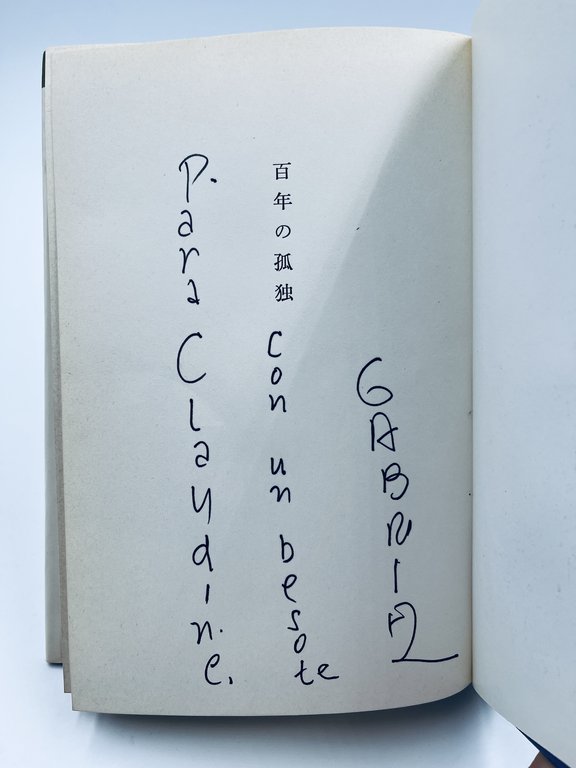 Para Claudine.
百年の孤独
con un besote
GABRIEL